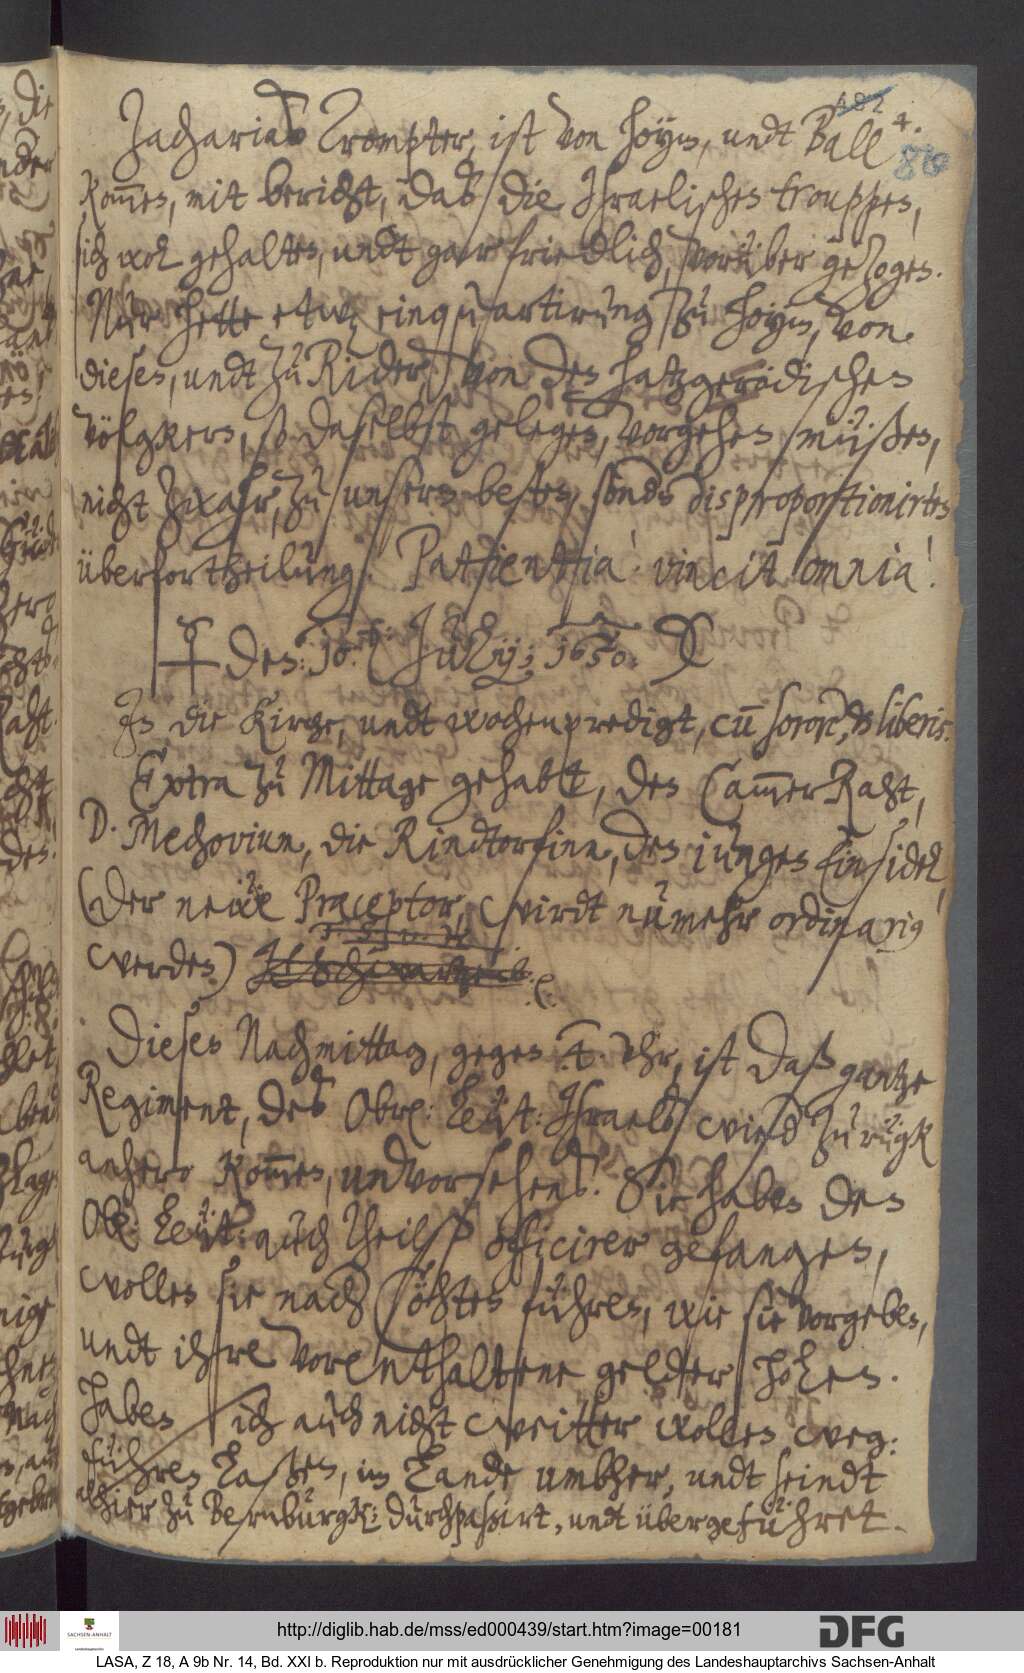 482
4.
86
Zacharias Trompter, ist von Hoym, undt Ball
kom̄en, mit bericht, daß die Jsraelischen trouppen,
sich wol gehalten, undt gar friedlich, vorüber gezogen.
Nur hette etwaß einquartirung zu Hoym, von
diesen, undt zu Rider, von den Hatzgerödischen
völgkern, so daselbst gelegen, vorgehen müßen,
nicht zwahr, zu unserm besten, sondern disproportionirten
überfortheilung. Patientia! vincit omnia!
den: 10.den July; 1650.
Jn die kirche, undt wochenpredigt, cum̄ sorore, et liberis.
Extra zu Mittage gehabtt, den Cam̄erRaht,
D. Mechovium, die Rindtorfinn, den iungen Einsidel
(der newe Præceptor, wirdt nu mehr ordinarius
werden)
Diesen Nachmittag, gegen 4. Uhr, ist daß gantze
Regiment, des Obr: Leüt: Jsraels wied zurügk
anhero kom̄en, unvorsehens. Sie haben den
Obr: Leüt: auch theilß officirer gefangen,
wollen sie nach Cöhten führen, wie sie vorgeben,
undt ihre vorenthaltene gelder holen.
haben sich auch nicht weitter wollen weg:
führen laßen, im Lande umbher, undt seindt
alhier zu Bernburgk: durchpassirt, undt übergeführet.
SACHSEN-ANHALT
http://diglib.hab.de/mss/ed000439/start.htm?image=00181
DFG
LASA, Z 18, A 9b Nr. 14, Bd. XXI b. Reproduktion nur mit ausdrücklicher Genehmigung des Landeshauptarchivs Sachsen-Anhalt